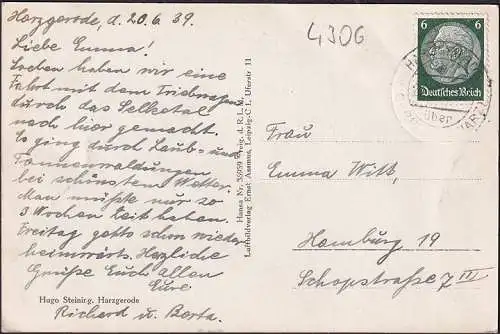 Harzgerode, d. 20.6.39.
Liebe Emma!
Soeben haben wir eine
Fahrt mit dem Triebwagen
durch das Selketal
nach hier gemacht.
Es ging durch Laub- und
Tannenwaldungen
bei schönstem Wetter.
Man müßte nur 20
3 Wochen Zeit haben.
Freitag gehts schon wieder
heimwärts. Herzliche
Grüße Euch Allen
Eure
Richard u. Berta.
Hugo Steinig, Harzgerode
Hansa Nr. 36959 Freig. d. R. L. M.
Luftbildverlag Ernst Asmus, Leipzig-C 1, Uferstr. 11
4306
6 6
Deutsches Reich
über
Frau
Emma Witt,
Hamburg 19
Schopstraße 7 III